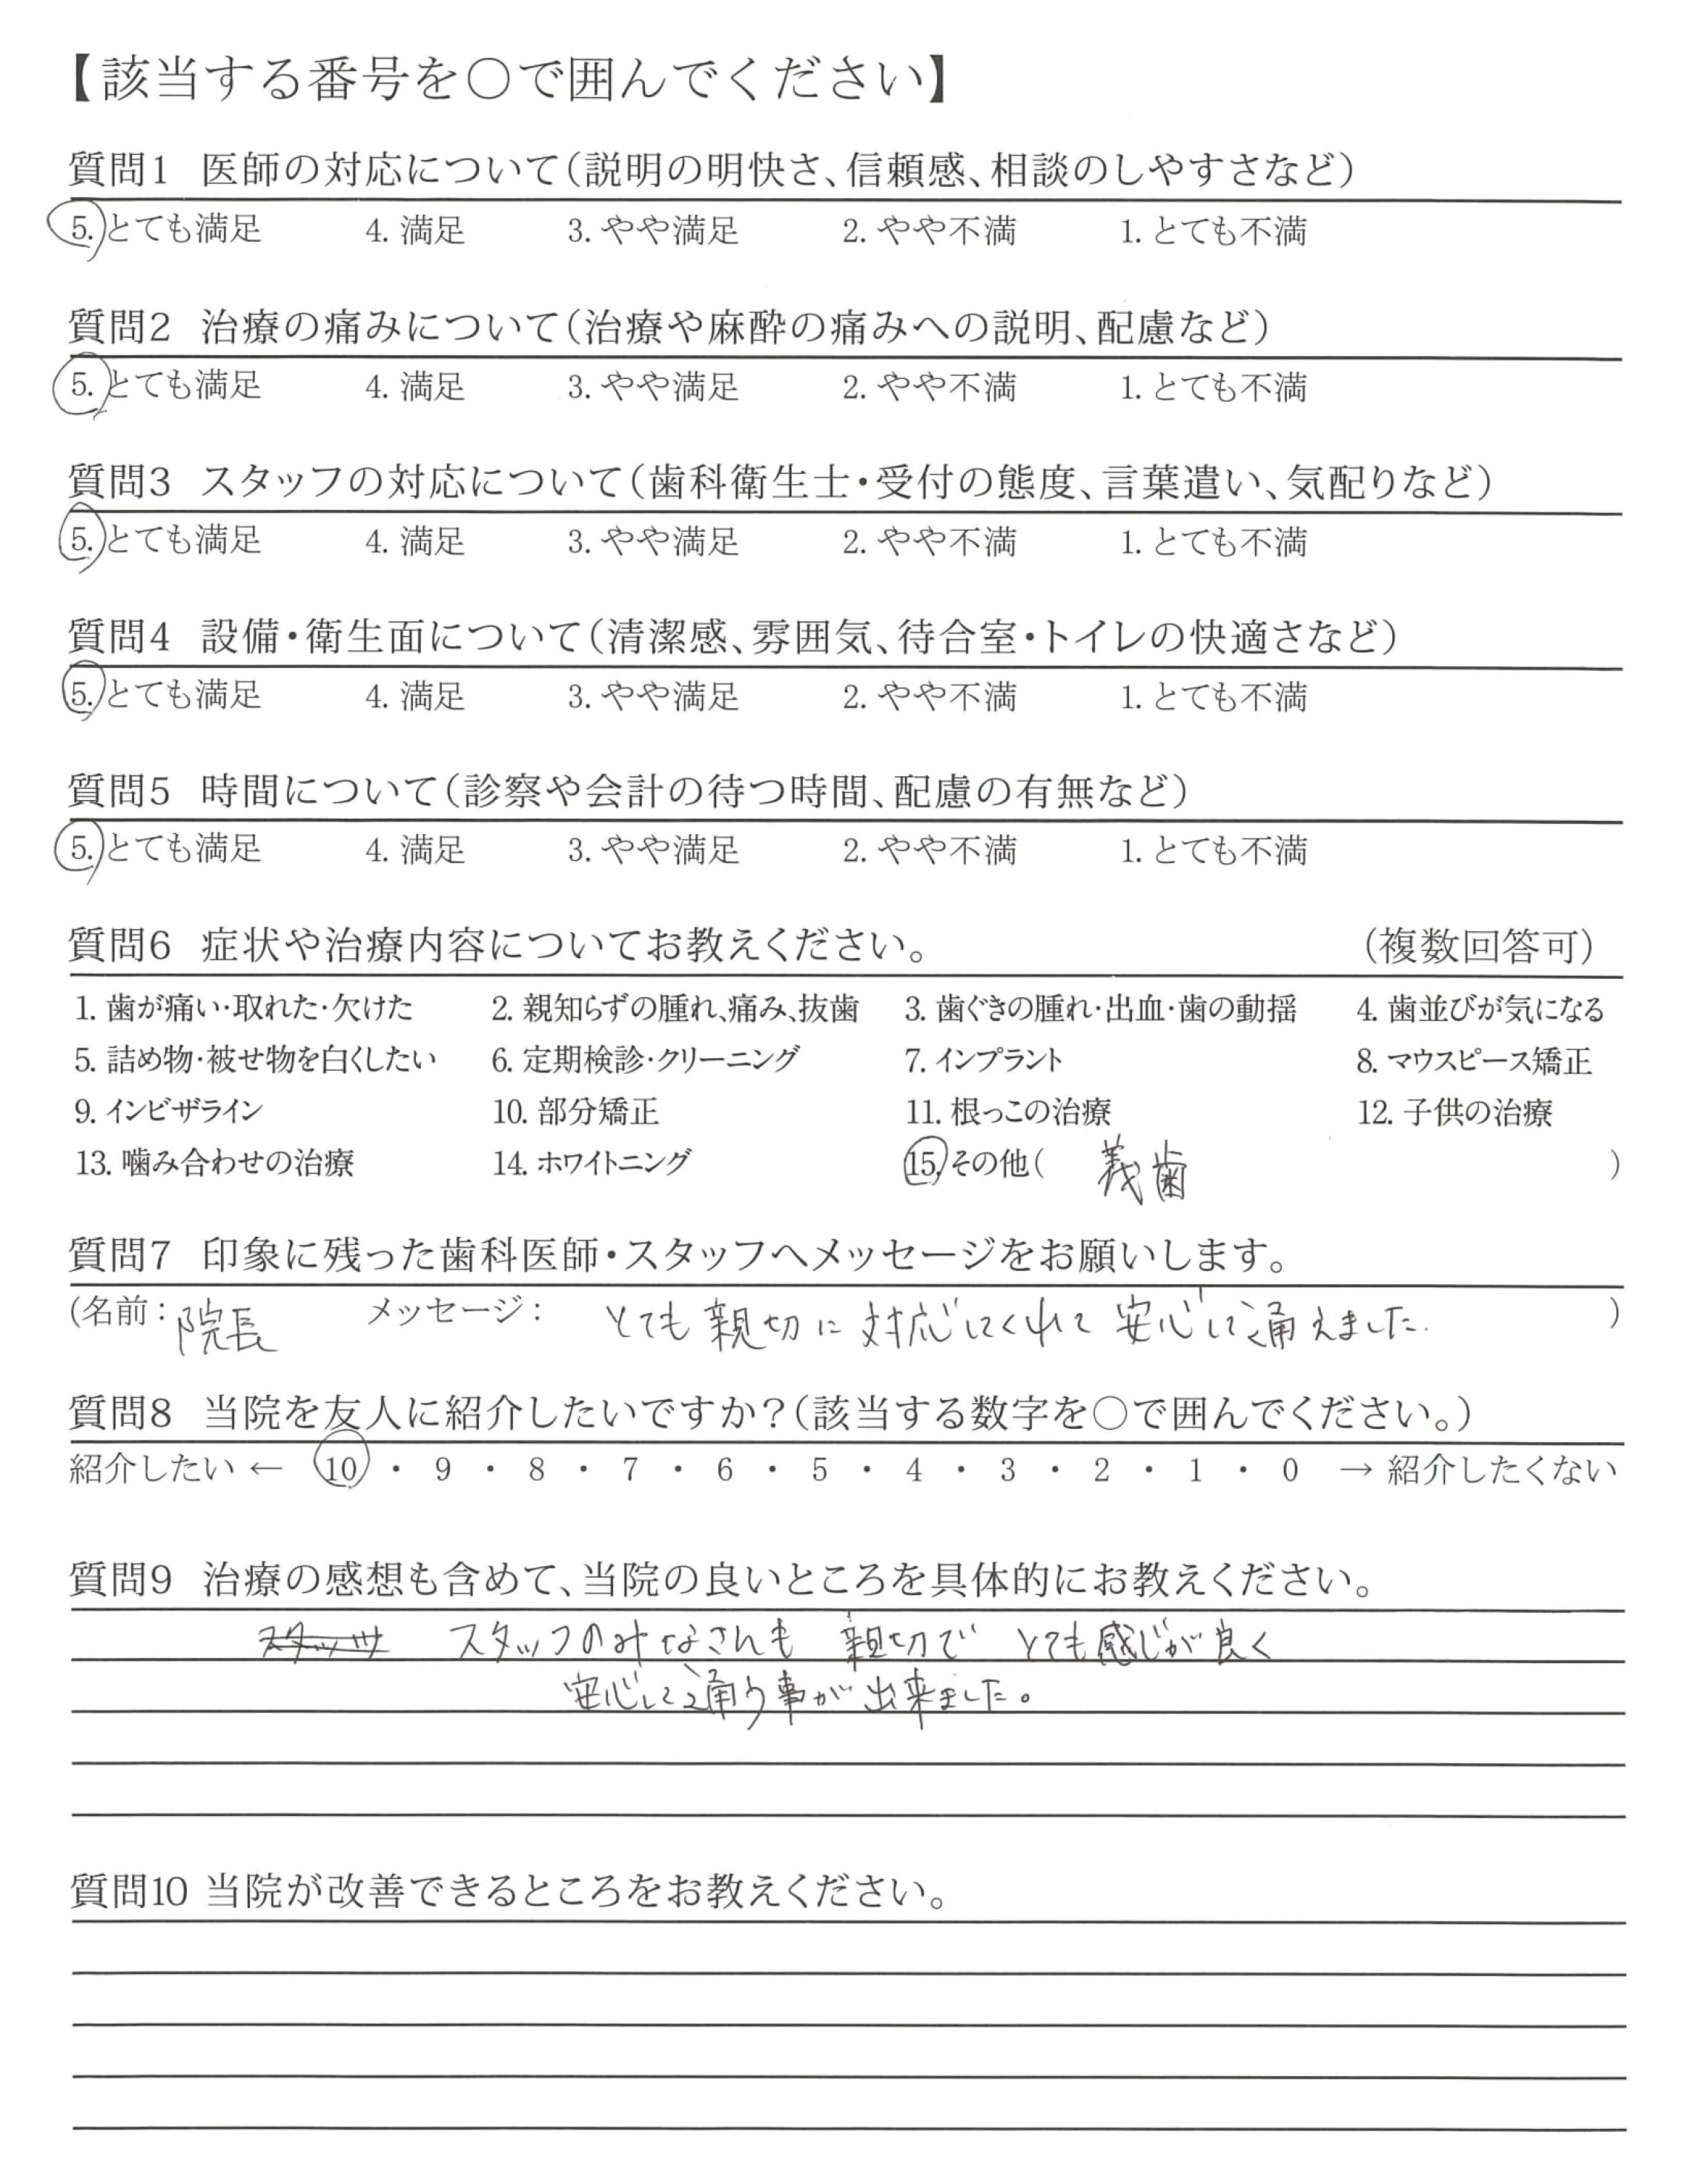 【該当する番号を○で囲んでください】
質問1 医師の対応について(説明の明快さ、信頼感、相談のしやすさなど)
5. とても満足 4. 満足 3. やや満足 2. やや不満 1. とても不満
質問2 治療の痛みについて(治療や麻酔の痛みへの説明、配慮など)
5. とても満足 4. 満足 3. やや満足 2. やや不満 1. とても不満
質問3 スタッフの対応について(歯科衛生士・受付の態度、言葉遣い、気配りなど)
5. とても満足 4. 満足 3. やや満足 2. やや不満 1. とても不満
質問4 設備・衛生面について(清潔感、雰囲気、待合室・トイレの快適さなど)
5. とても満足 4. 満足 3. やや満足 2. やや不満 1. とても不満
質問5 時間について(診察や会計の待つ時間、配慮の有無など)
5. とても満足 4. 満足 3. やや満足 2. やや不満 1. とても不満
質問6 症状や治療内容についてお教えください。 (複数回答可)
1. 歯が痛い・取れた・欠けた 2. 親知らずの腫れ、痛み、抜歯 3. 歯ぐきの腫れ・出血・歯の動揺 4. 歯並びが気になる
5. 詰め物・被せ物を白くしたい 6. 定期検診・クリーニング 7. インプラント 8. マウスピース矯正
9. インビザライン 10. 部分矯正 11. 根っこの治療 12. 子供の治療
13. 噛み合わせの治療 14. ホワイトニング 15. その他( 義歯 )
質問7 印象に残った歯科医師・スタッフへメッセージをお願いします。
(名前: 院長 メッセージ: とても親切に対応してくれて安心して通えました. )
質問8 当院を友人に紹介したいですか?(該当する数字を○で囲んでください。)
紹介したい ← 10 ・ 9 ・ 8 ・ 7 ・ 6 ・ 5 ・ 4 ・ 3 ・ 2 ・ 1 ・ 0 → 紹介したくない
質問9 治療の感想も含めて、当院の良いところを具体的にお教えください。
スタッフのみなさんも 親切で とても感じが良く
安心して通う事が出来ました。
質問10 当院が改善できるところをお教えください。